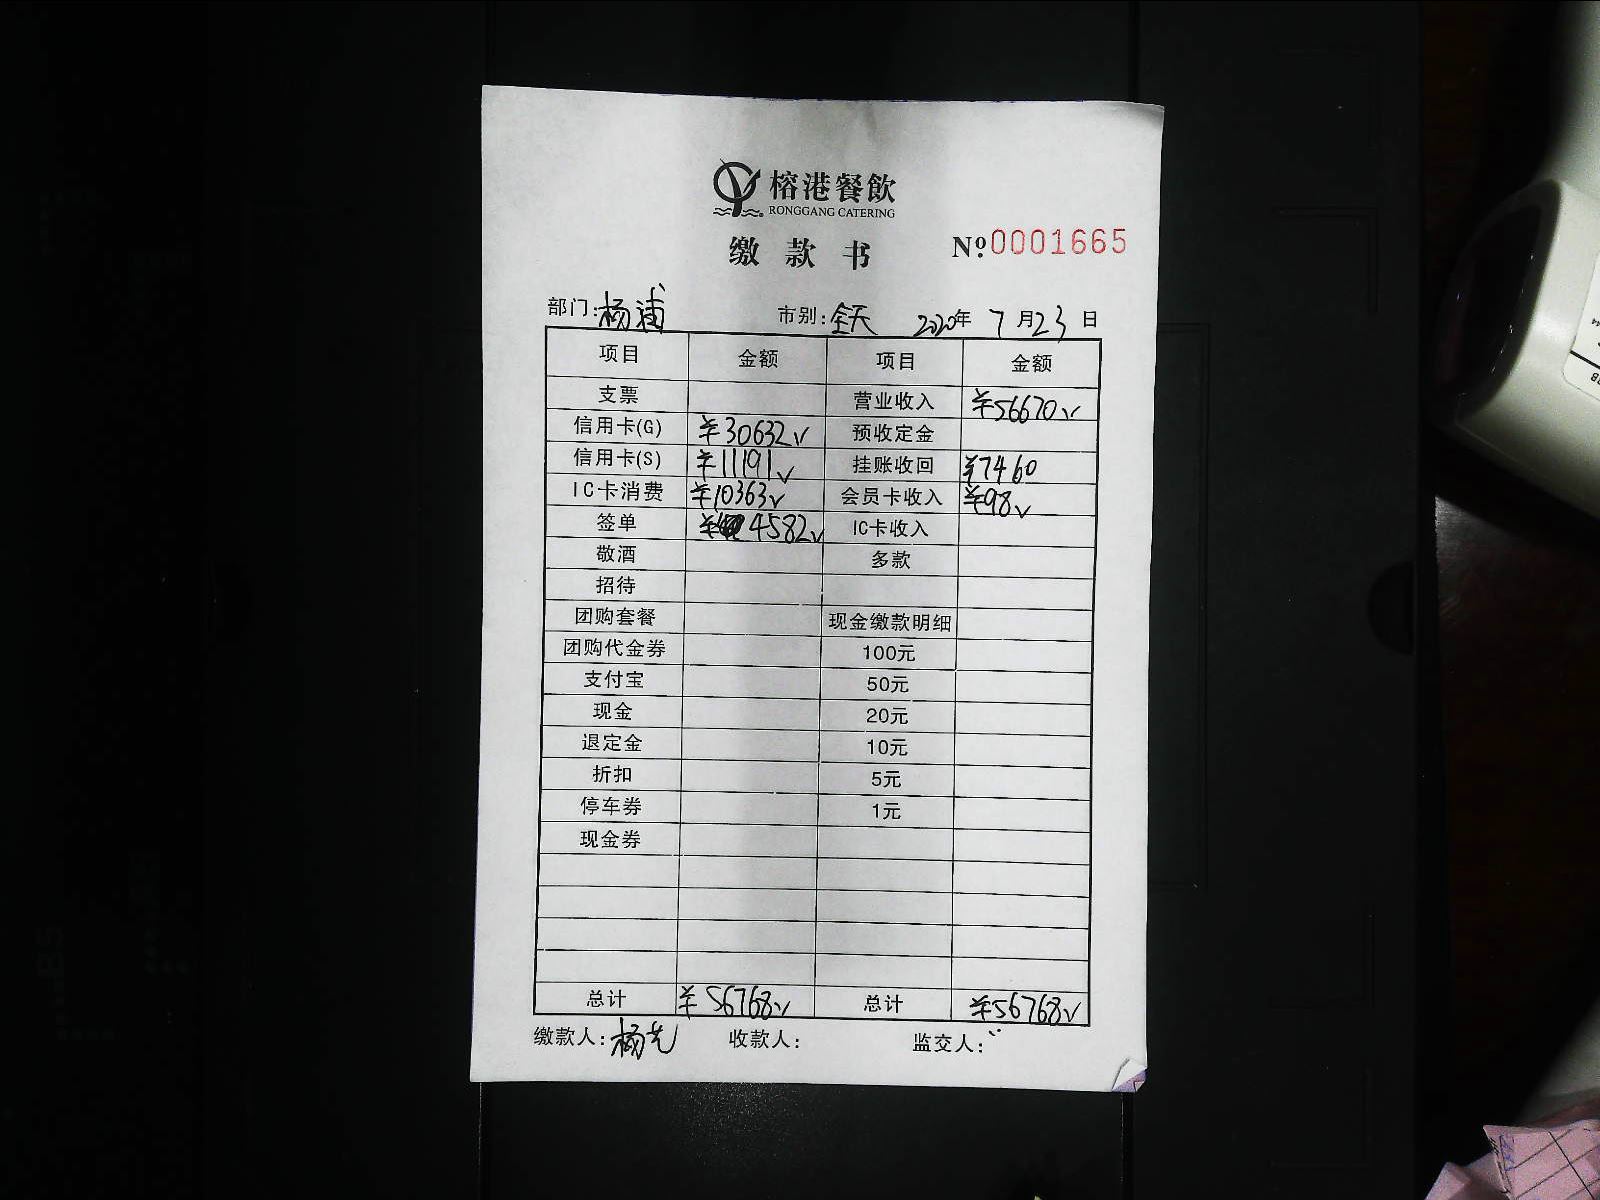 榕港餐飲
RONGGANG CATERING
缴款书
Nº:0001665
部门:杨浦 市别:全天 2020年7月23日
项目 金额 项目 金额
支票 营业收入 ¥56670√
信用卡(G) ¥30632√ 预收定金
信用卡(S) ¥11191√ 挂账收回 ¥7460
IC卡消费 ¥10363√ 会员卡收入 ¥98√
签单 ¥4582√ IC卡收入
敬酒 多款
招待
团购套餐 现金缴款明细
团购代金券 100元
支付宝 50元
现金 20元
退定金 10元
折扣 5元
停车券 1元
现金券
总计 ¥56768√ 总计 ¥56768√
缴款人:杨 收款人: 监交人: